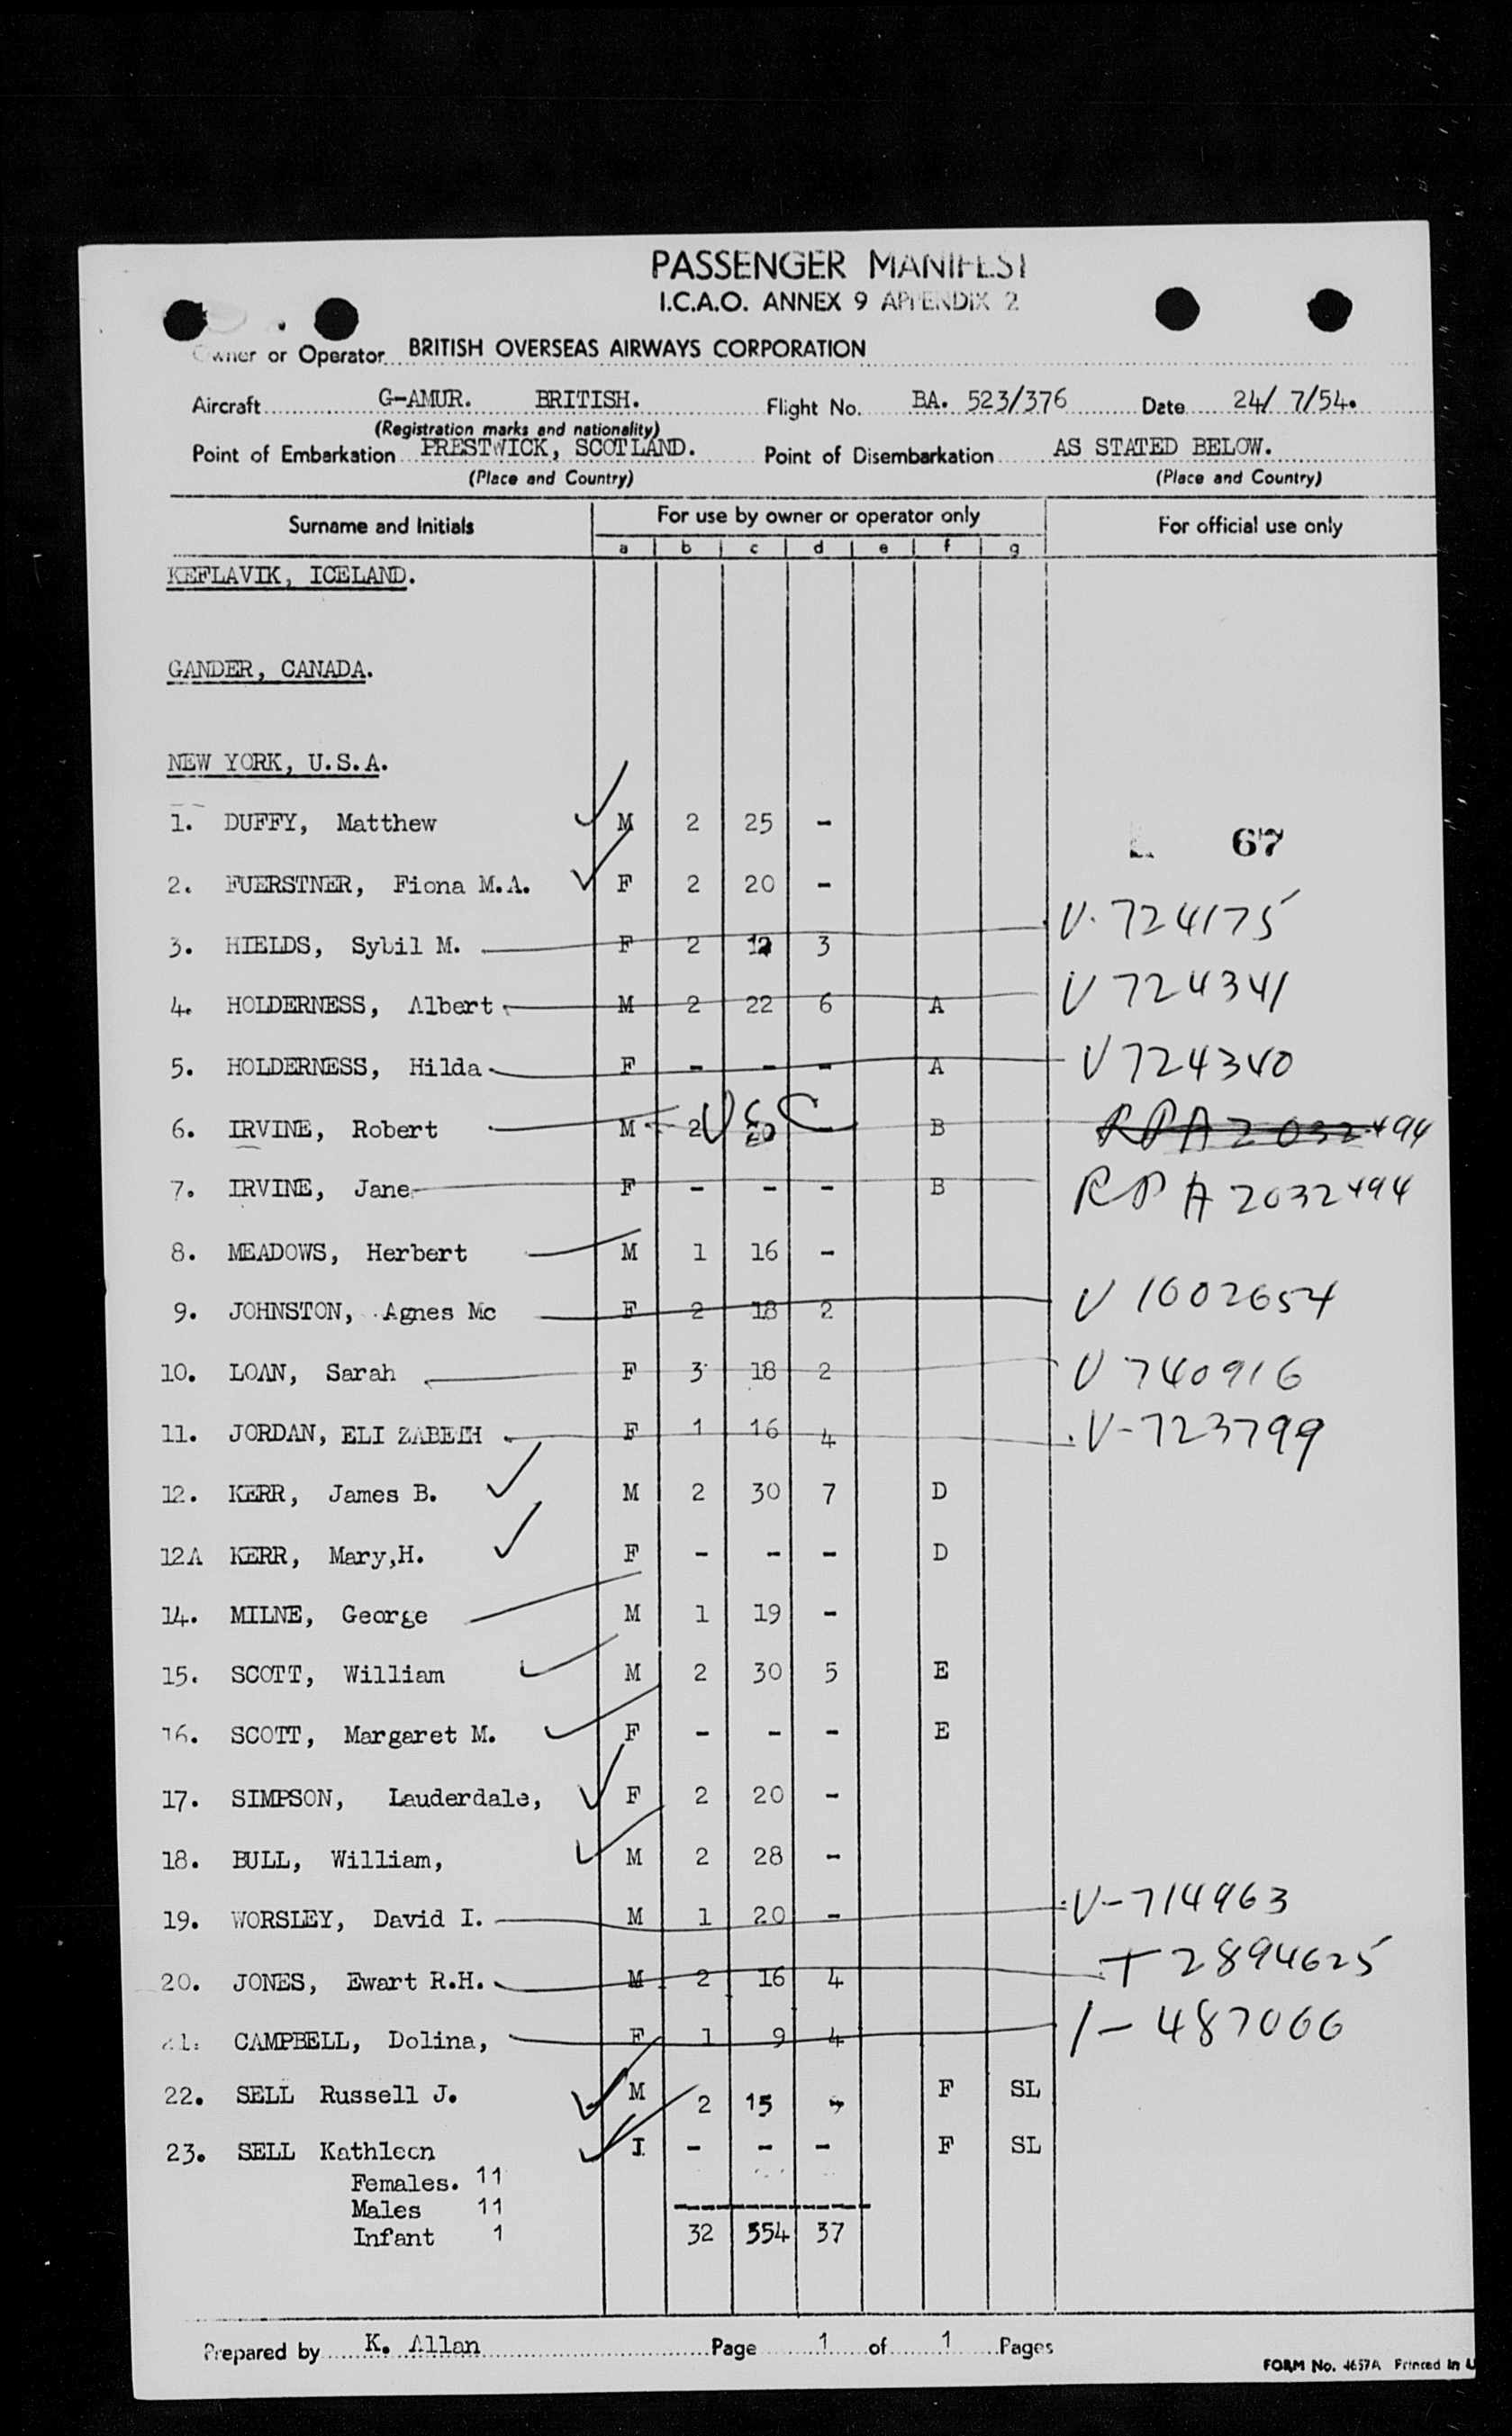 PASSENGER MANIFEST
I.C.A.O. ANNEX 9 APPENDIX 2
Owner or Operator BRITISH OVERSEAS AIRWAYS CORPORATION
Aircraft G-AMUR. BRITISH. Flight No. BA. 523/376 Date 24/ 7/54.
(Registration marks and nationality)
Point of Embarkation PRESTWICK, SCOTLAND. Point of Disembarkation AS STATED BELOW.
(Place and Country) (Place and Country)
Surname and Initials For use by owner or operator only For official use only
a b c d e f g
KEFLAVIK, ICELAND.
GANDER, CANADA.
NEW YORK, U.S.A.
1. DUFFY, Matthew M 2 25 -
67
2. FUERSTNER, Fiona M.A. F 2 20 -
3. HIELDS, Sybil M. F 2 12 3 V. 724175
4. HOLDERNESS, Albert M 2 22 6 A V 724341
5. HOLDERNESS, Hilda F - - - A V 724340
6. IRVINE, Robert M 2 USC - B RPA 2032494
7. IRVINE, Jane F - - - B RPA 2032494
8. MEADOWS, Herbert M 1 16 -
9. JOHNSTON, Agnes Mc F 2 18 2 V 1002654
10. LOAN, Sarah F 3 18 2 V 740916
11. JORDAN, ELIZABETH F 1 16 4 V-723799
12. KERR, James B. M 2 30 7 D
12A KERR, Mary,H. F - - - D
14. MILNE, George M 1 19 -
15. SCOTT, William M 2 30 5 E
16. SCOTT, Margaret M. F - - - E
17. SIMPSON, Lauderdale, F 2 20 -
18. BULL, William, M 2 28 -
19. WORSLEY, David I. M 1 20 - V-714963
20. JONES, Ewart R.H. M 2 16 4 T 2894625
21. CAMPBELL, Dolina, F 1 9 4 1-487066
22. SELL Russell J. M 2 15 F SL
23. SELL Kathleen I - - - F SL
Females. 11
Males 11
Infant 1 32 354 37
Prepared by K. Allan Page 1 of 1 Pages
FORM No. 4657A Printed in